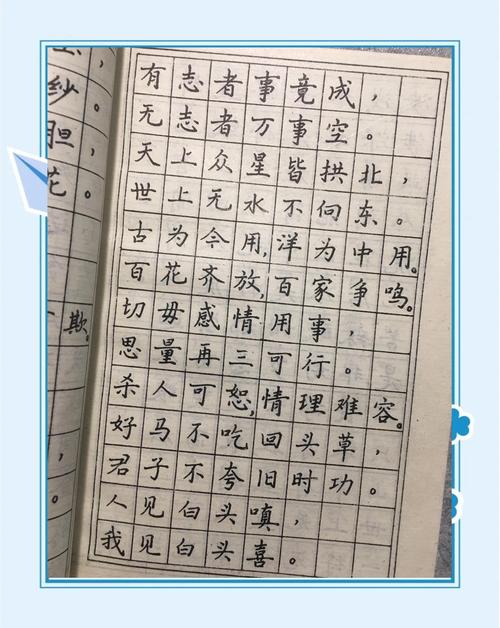 纱。
胆，
花。
欺。
有志者事竟成，
无志者万事空。
天上众星皆拱北，
世上无水不向东。
古为今用,洋为中用。
百花齐放,百家争鸣。
切毋感情用事，
思量再三可行。
杀人可恕,情理难容。
好马不吃回头草，
君子不夸旧时功。
人见白头嗔，
我见白头喜。